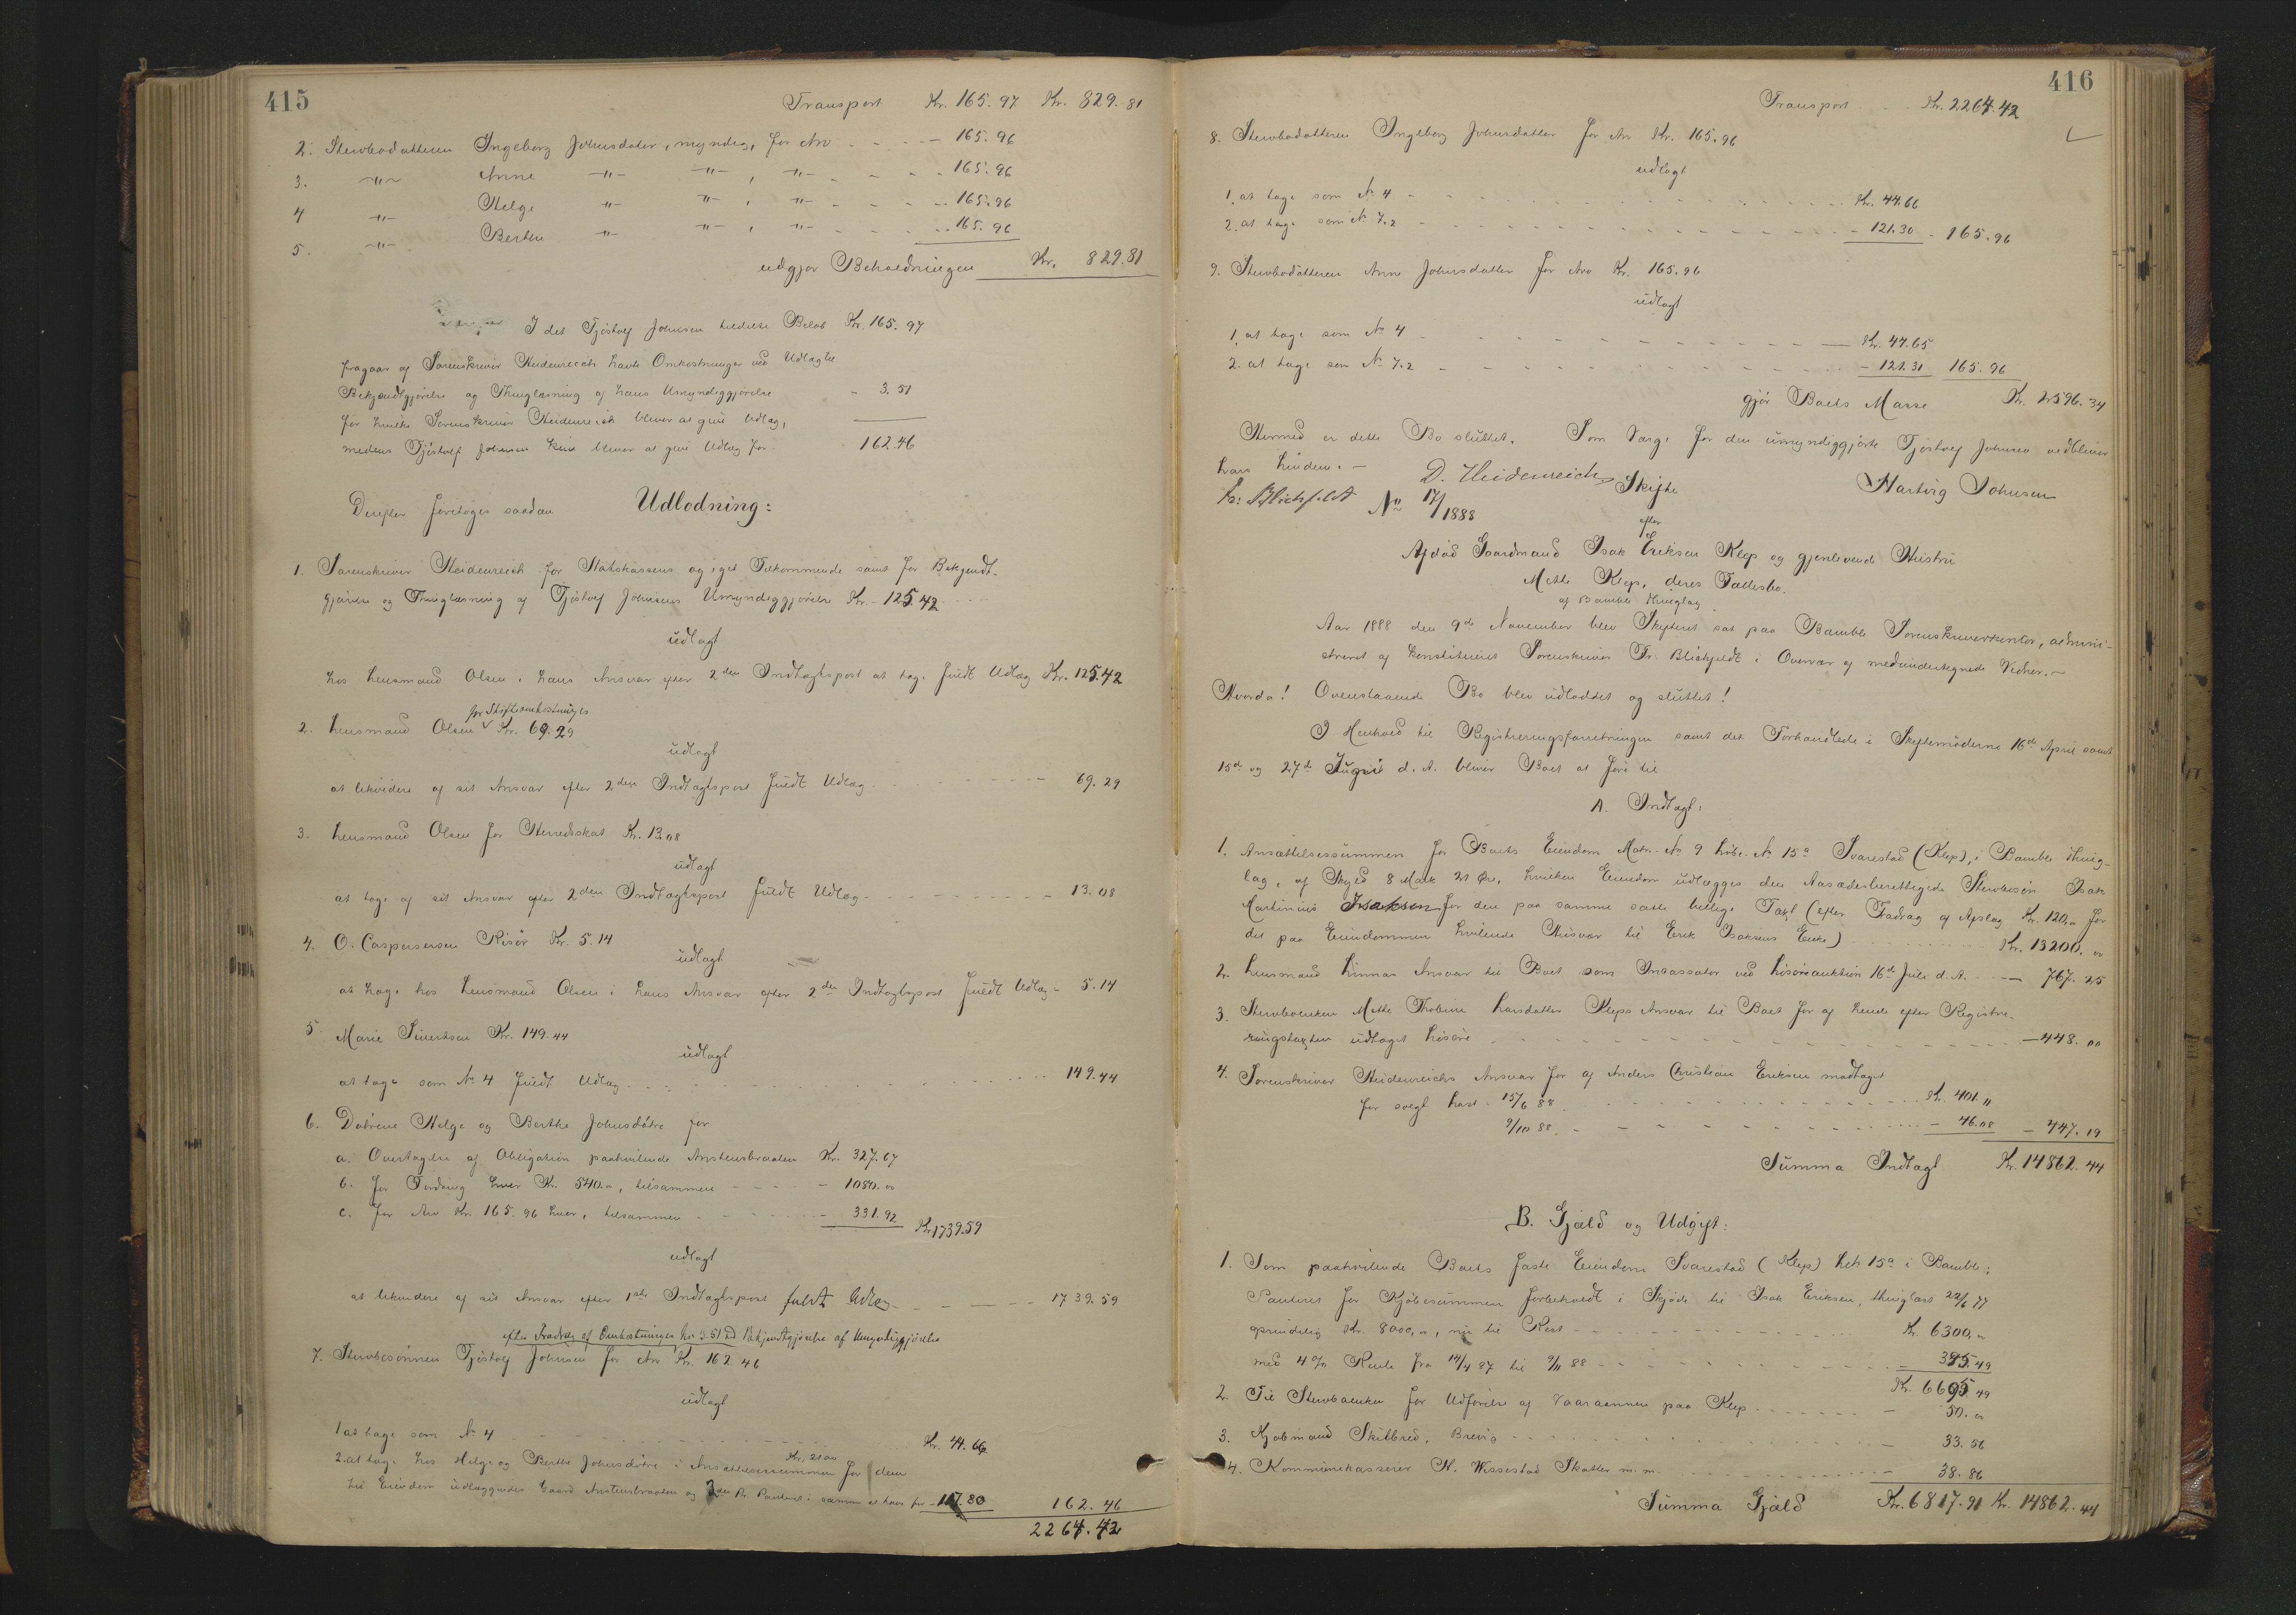 415
Transport Kr. 165.97 Kr. 829.81
2. Stervbodatteren Ingeborg Johnsdatter, myndig, for Arv - - - - 165.96
3. -"- Anne -"- -"-, -"- - - - - 165.96
4 -"- Helge -"- -"-, -"- - - - - 165.96
5. -"- Berthe -"- -"-, -"- - - - - 165.96
udgjør Beholdningen Kr. 829.81
I det Tjøstolf Johnsen tildelte Beløb Kr. 165.97
fragaar af Sorenskriver Heidenreich havte Omkostninger ved Udlagte
Bekjendtgjørelse og Thinglæsning af hans Umyndiggjørelse - 3.51
for hvilke Sorenskriver Heidenreich bliver at give Udlæg,
medens Tjøstolf Johnsen kun bliver at give Udlæg for 162.46
Derefter foretoges saadan Udlodning:
1. Sorenskriver Heidenreich for Statskassens og eget Tilkommende samt for Bekjendt-
gjørelse og Thinglæsning af Tjøstolf Johnsens Umyndiggjørelse Kr. 125.42
udlagt
hos Lensmand Olsen i hans Ansvar efter 2den Indtægtspost at tage fuldt Udlæg Kr. 125.42
for Skifteomkostninger
2. Lensmand Olsen Kr. 69.29
udlagt
at likvidere af sit Ansvar efter 2den Indtægtspost fuldt Udlæg - - - 69.29
3. Lensmand Olsen for Herredsskat Kr. 13.08
udlagt
at tage af sit Ansvar efter 2den Indtægtspost fuldt Udlæg - - - 13.08
4. O. Caspersersen Risør Kr. 5.14
udlagt
at tage hos Lensmand Olsen i hans Ansvar efter 2den Indtægtspost fuldt Udlæg - 5.14
5. Marie Sivertsen Kr. 149.44
udlagt
at tage som No 4 fuldt Udlæg - - - 149.44
6. Døtrene Helge og Berthe Johnsdøtre for
a. Overtagelse af Obligation paahvilende Anstensbraaten Kr. 327.67
b. for Fordring hver Kr. 540.00, tilsammen - - - - 1080.00
c. for Arv Kr. 165.96 hver, tilsammen - - - 331.92 Kr. 1739.59
udlagt
at likvidere af sit Ansvar efter 1ste Indtægtspost fuldt Udlæg - - - 1739.59
efter Fradrag af Omkostninger Kr. 3.51 ved Bekjendtgjørelse af Umyndiggjørelse
7. Stervbosønnen Tjøstolf Johnsen for Arv Kr. 162.46
udlagt
1. at tage som No 4 - - - Kr. 44.66
2. at tage hos Helge og Berthe Johnsdøtre i Ansættelsessummen Kr. 2100 for den
til Eiendom udlæggendes Gaard Anstensbraaten og 2den Pr. Panteret i samme at have for - 117.80 162.46
2264.42
416
Transport - - - Kr. 2264.42
8. Stervbodatteren Ingeborg Johnsdatter for Arv Kr. 165.96
udlagt
1. at tage som No 4 - - - Kr. 44.66
2. at tage som No 7.2 - - - 121.30 - 165.96
9. Stervbodatteren Anne Johnsdatter for Arv Kr. 165.96
udlagt
1. at tage som No 4 - - - Kr. 44.65
2. at tage som No 7.2 - - - 121.31 165.96
gjør Boets Masse Kr. 2596.34
Hermed er dette Bo sluttet. Som Værge for den umyndiggjorte Tjøstolf Johnsen vedbliver
D. Heidenreich
Hartvig Johnsen
Fr. Blichfeldt
No 17/1888 Skifte
efter
Afdød Gaardmand Isak Eriksen Klep og gjenlevende Hustru
Mette Klep, deres Fællesbo.
af Bamble Thinglag
Aar 1888 den 9de November blev Skifteret sat paa Bamble Sorenskriverkontor, admini-
streret af konstitueret Sorenskriver Fr. Blichfeldt i Overvær af medundertegnede Vidner. -
Hvorda! Ovenstaaende Bo blev udloddet og sluttet!
I Henhold til Registreringsforretningen samt det Forhandlede i Skiftemøderne 16de April samt
15de og 27de Juni d. A. bliver Boet at føre til
A. Indtægt:
1. Ansættelsessummen for Boets Eiendom Matr. No 9 Løbe No 15a Svarestad (Klep), i Bamble Thing-
lag, af Skyld 8 Mark 21 Øre, hvilken Eiendom udlægges den Aasædesberettigede Stervbosøn Isak
Martinius Isaksen for den paa samme satte billige Taxt (efter Fradrag af Afslag Kr. 120.00 for
det paa Eiendommen hvilende Husvær til Erik Isaksens Enke) - - - Kr. 13200.00
2. Lensmand Linnas Ansvar til Boet som Incassator ved Løsøreauktion 16de Juli d. A. - - 767.25
3. Stervboenken Mette Thobine Larsdatter Kleps Ansvar til Boet for af hende efter Registre-
ringstaxten udtaget Løsøre - - - 448.00
4. Sorenskriver Heidenreichs Ansvar for af Anders Christian Eriksen modtaget
for solgt Last 15/6 88 - - - Kr. 401.11
9/10 88. - - - 46.08 - 447.19
Summa Indtægt Kr. 14862.44
B. Gjæld og Udgift:
1. Som paahvilende Boets faste Eiendom Svarestad (Klep) Lb 15a i Bamble:
Panteret for Kjøbesummen forbeholdt i Skjøde til Isak Eriksen, thinglæst 22/6 77
oprindelig Kr. 8000.00, nu til Rest - - - Kr. 6300.00
med 4 % Rente fra 14/4 87 til 9/11 88 - - - 395.49
Kr. 6695.49
2. Til Stervboenken for Udførelse af Vaaraannen paa Klep - - - 50.00
3. Kjøbmand Skilbred, Brevig - - - 33.56
4. Kommunekasserer N. Wissestad Skatter m.m. - - - 38.86
Summa Gjæld Kr. 6817.91 Kr. 14862.44